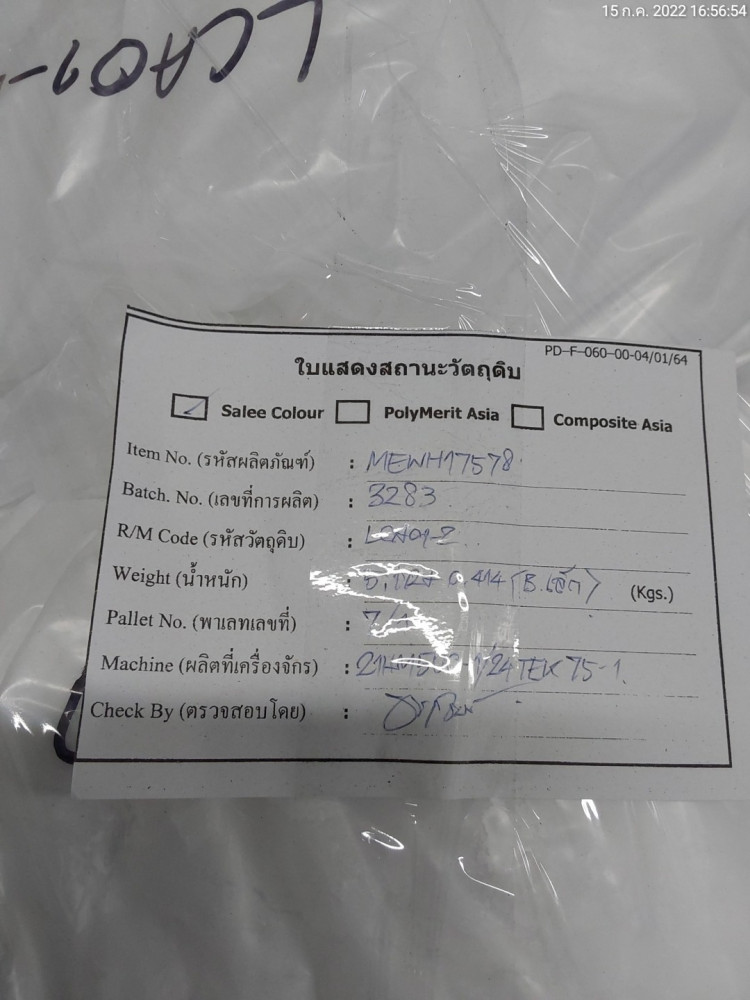 15 ก.ค. 2022 16:56:54
PD-F-060-00-04/01/64
ใบแสดงสถานะวัตถุดิบ
Salee Colour PolyMerit Asia Composite Asia
Item No. (รหัสผลิตภัณฑ์) : MEWH17578
Batch. No. (เลขที่การผลิต) : 3283
R/M Code (รหัสวัตถุดิบ) :
Weight (น้ำหนัก) : 0.414 (Kgs.)
Pallet No. (พาเลทเลขที่) :
Machine (ผลิตที่เครื่องจักร) : TEK 75-1
Check By (ตรวจสอบโดย) :